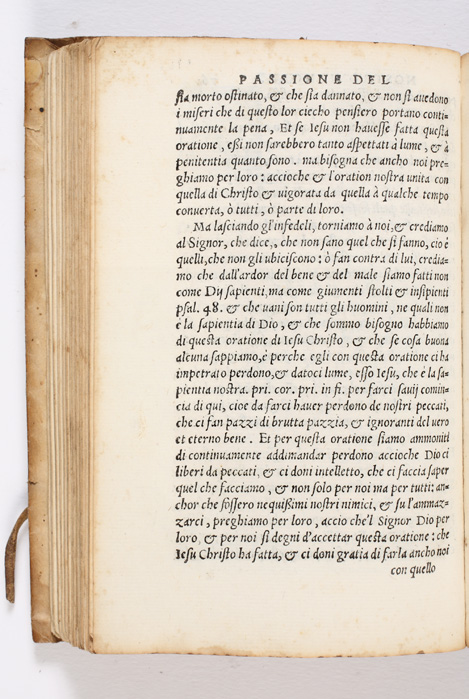 PASSIONE DEL
sia morto ostinato, & che sia dannato, & non si auedono
i miseri che di questo lor ciecho pensiero portano conti-
nuamente la pena, Et se Iesu non hauesse fatta questa
oratione, essi non sarebbero tanto aspettati à lume, & à
penitentia quanto sono. ma bisogna che ancho noi pre-
ghiamo per loro: accioche & l'oration nostra unita con
quella di Christo & uigorata da quella à qualche tempo
conuerta, ò tutti, ò parte di loro.
Ma lasciando gl'infedeli, torniamo à noi, & crediamo
al Signor, che dice, che non sano quel che si fanno, cio è
quelli, che non gli ubiscono: ò fan contra di lui, credia-
mo che dall'ardor del bene & del male siamo fatti non
come Dij sapienti, ma come giumenti stolti & insipienti
psal. 48. & che uani son tutti gli huomini, ne quali non
è la sapientia di Dio, & che sommo bisogno habbiamo
di questa oratione di Iesu Christo, & che se cosa buona
alcuna sappiamo, è perche egli con questa oratione ci ha
impetrato perdono, & datoci lume, esso Iesu, che è la sa-
pientia nostra. pri. cor. pri. in fi. per farci sauij comin-
cia di qui, cioe da farci hauer perdono de nostri peccati,
che ci fan pazzi di brutta pazzia, & ignoranti del uero
et eterno bene. Et per questa oratione siamo ammoniti
di continuamente addimandar perdono accioche Dio ci
liberi da peccati, & ci doni intelletto, che ci faccia saper
quel che facciamo, & non solo per noi ma per tutti: an-
chor che fossero nequissimi nostri nimici, & su l'ammaz-
zarci, preghiamo per loro, accio che'l Signor Dio per
loro & per noi si degni d'accettar questa oratione: che
Iesu Christo ha fatta, & ci doni gratia di farla ancho noi
con quello